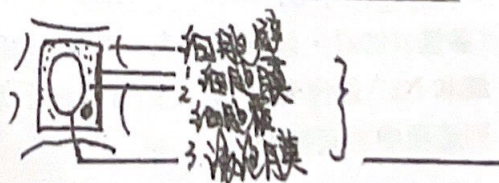 细胞壁
2.细胞膜
细胞
3.液泡膜